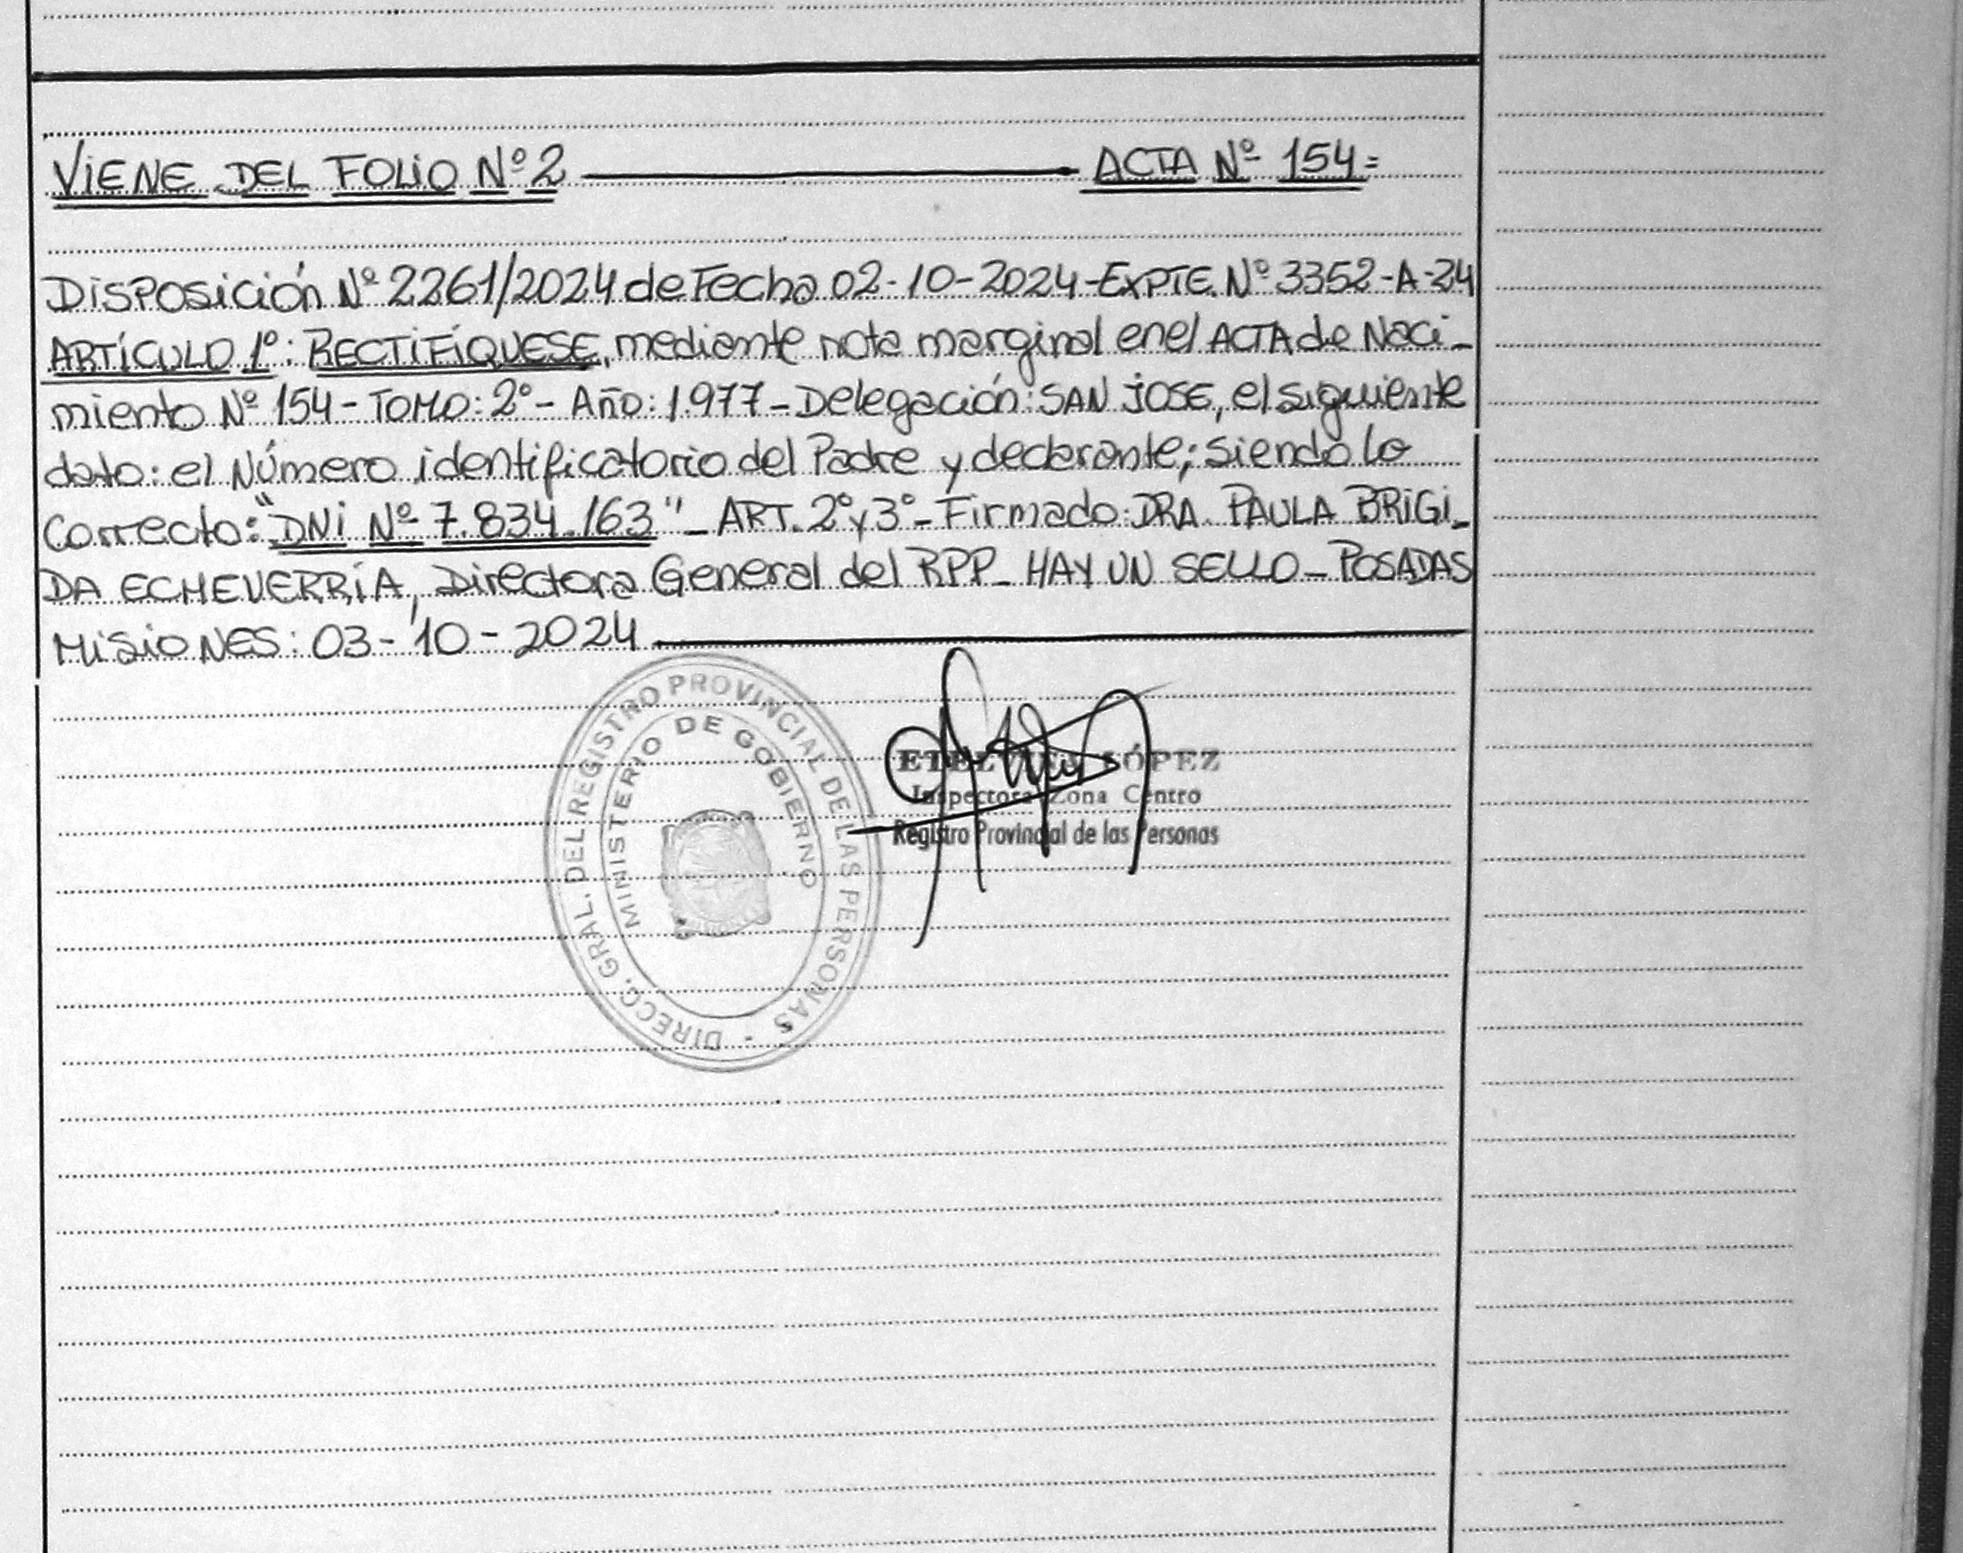 VIENE DEL FOLIO Nº 2 ACTA Nº 154=
Disposición Nº 2261/2024 de Fecha 02-10-2024-EXPTE. Nº 3352-A-24
ARTÍCULO 1º: RECTIFÍQUESE, mediante nota marginal en el ACTA de Naci-
miento Nº 154-TOMO: 2º- Año: 1.977-Delegación: SAN JOSE, el siguiente
dato: el Número identificatorio del Padre y declarante; siendo lo
Correcto: "DNI Nº 7.834.163"- ART. 2º y 3º- Firmado: DRA. PAULA BRIGI-
DA ECHEVERRÍA, Directora General del RPP- HAY UN SELLO-POSADAS
MISIONES: 03-10-2024
DIRECC. GRAL. DEL REGISTRO PROVINCIAL DE LAS PERSONAS -
MINISTERIO DE GOBIERNO
ETELVINA LÓPEZ
Inspectora Zona Centro
Registro Provincial de las Personas